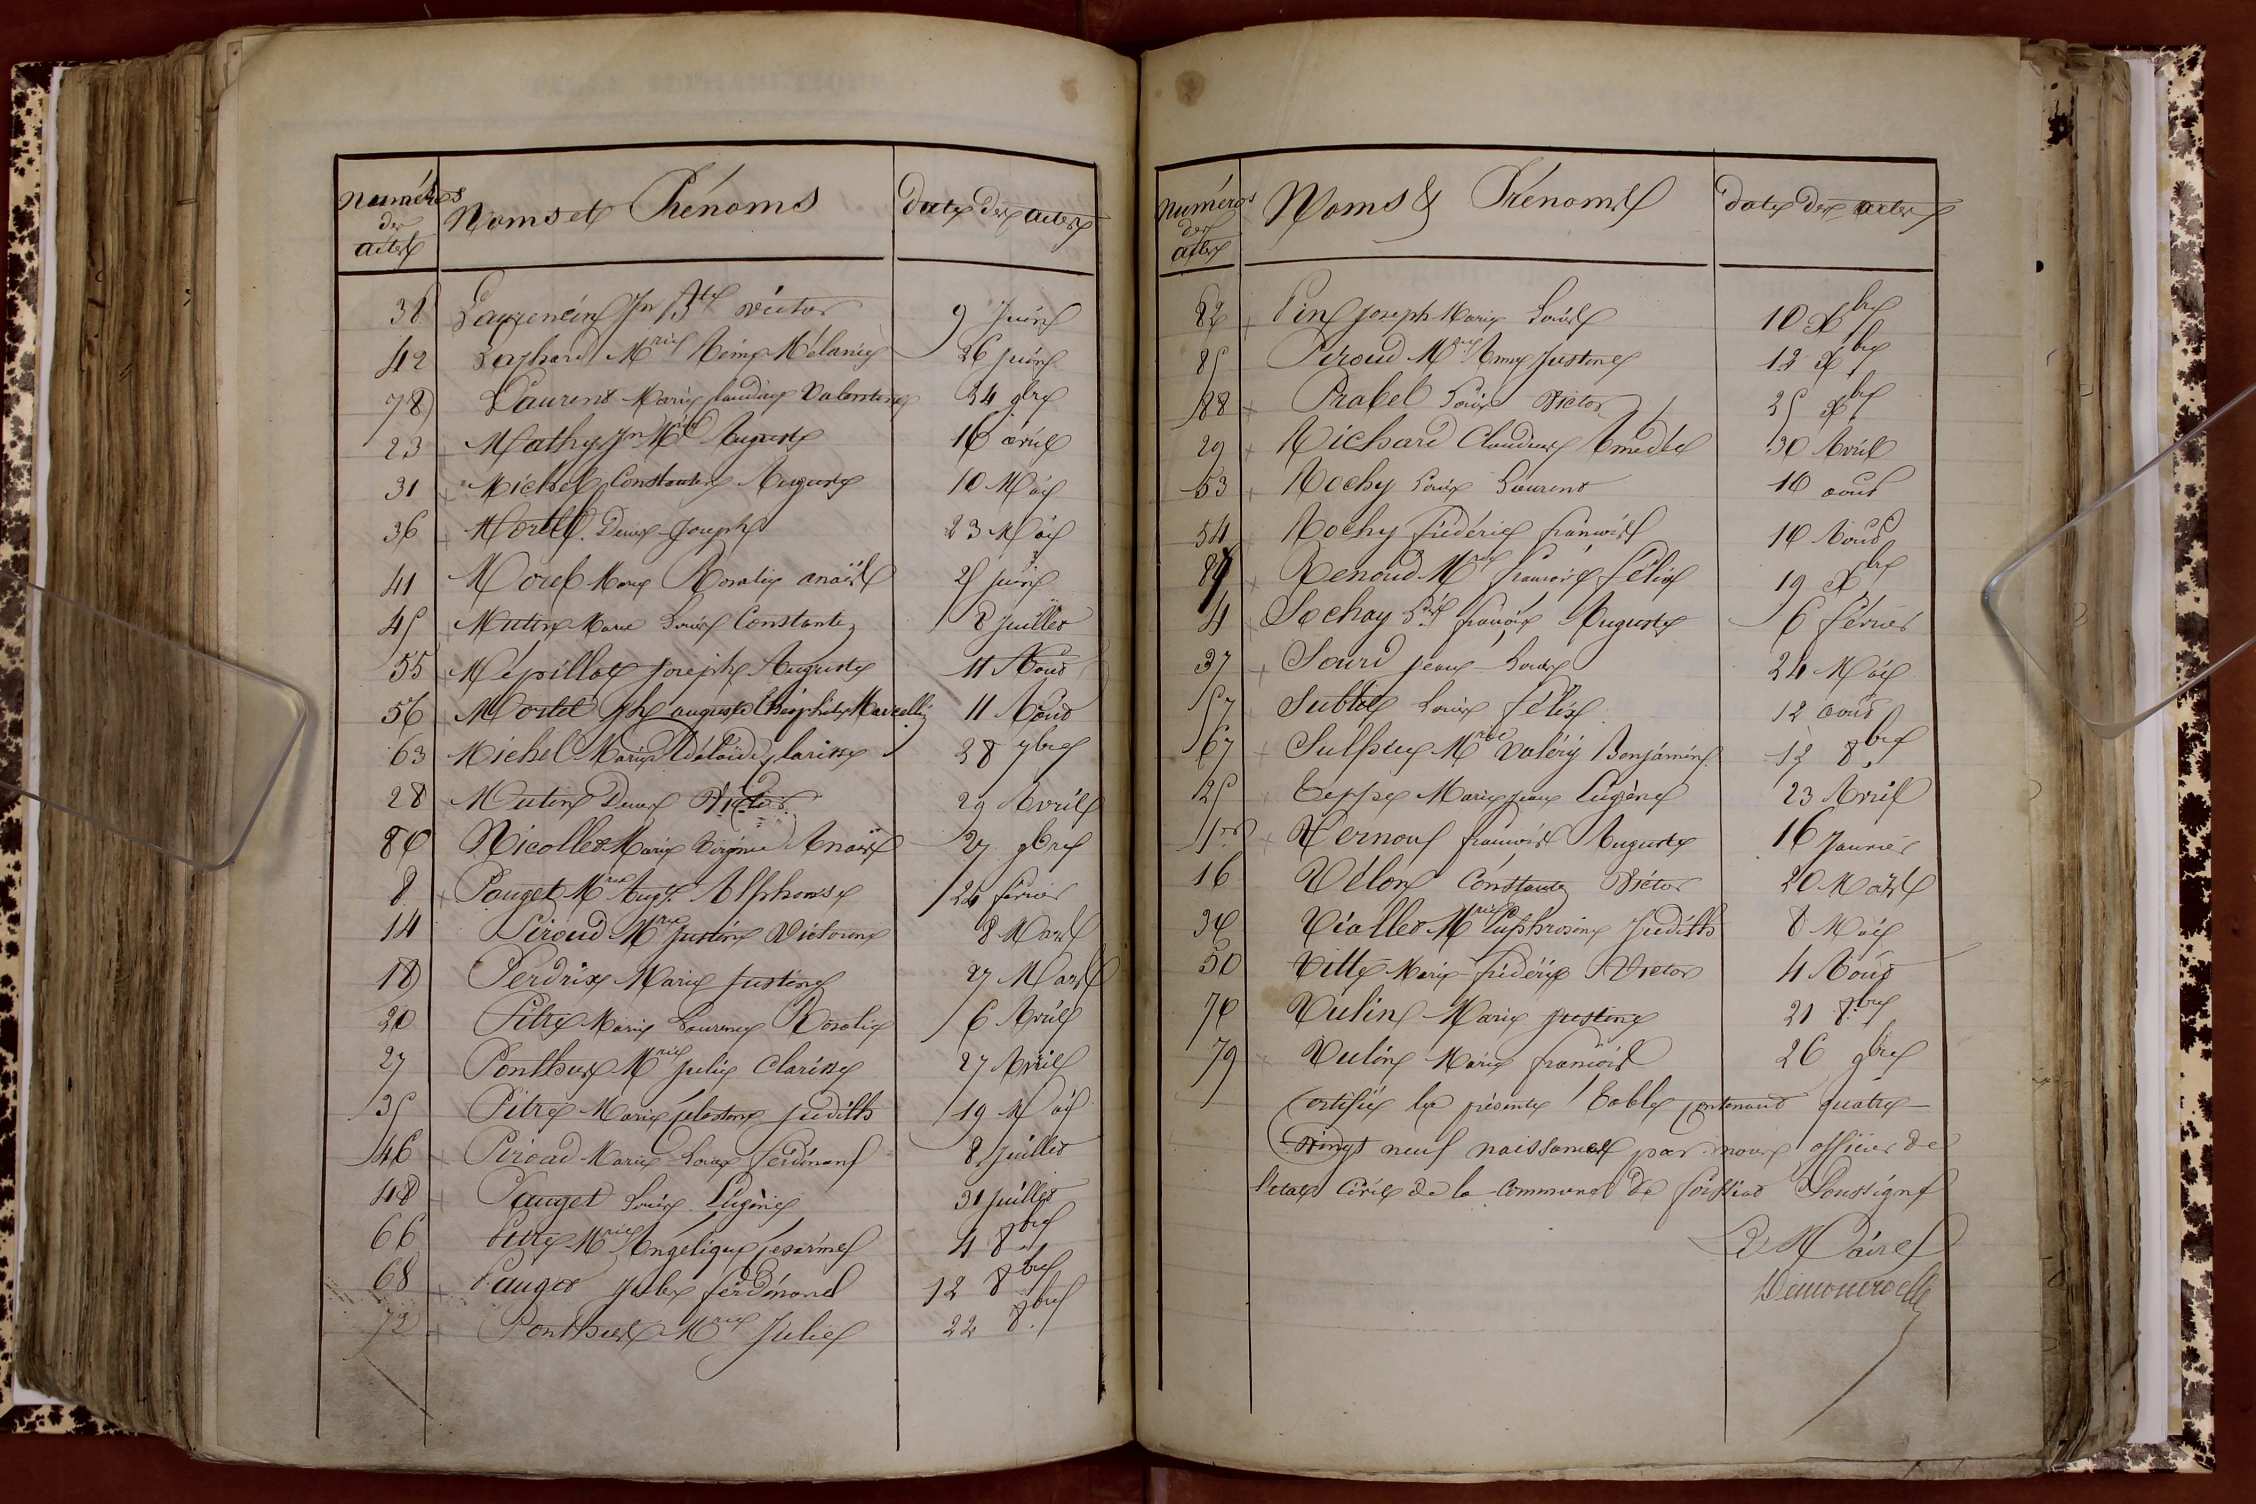 Numéros
des
actes
Noms et Prénoms
dates des actes
38 Laurencin Jn Bte Victor 9 Juin
42 Laphard Mrie Reine Mélanie 26 juin
78 Laurent Marie Claudine Valentine 24 9bre
23 Mathy Jn Auguste 16 avril
31 Michel Constantin Auguste 10 Mai
36 Morel Denis Joseph 23 Mai
41 Morel Marie Rosalie anaïs 25 juin
45 Mutin Marie Louise Constante 8 juillet
55 Mépillat Joseph Auguste 11 Aout
56 Mortel Jh auguste Théophile Marcellin 11 Aout
63 Michel Marie Adélaïde Clarisse 28 7bre
28 Mutin Denis Victor 29 Avril
80 Nicollet Marie Virginie Anaïs 27 9bre
8 Pauget Mrie Augte Alphonse 24 février
14 Piroud Mrie Justine Victorine 8 Mars
18 Perdrix Marie Justine 27 Mars
20 Pitre Marie Laurence Rosalie 6 Avril
27 Ponthus Mrie Julie Clarisse 27 Avril
35 Pitre Marie Célestine Judith 19 Mai
46 Piroud Marie Louis ferdinand 8 juillet
48 Pauget Louis Eugène 31 juillet
66 Pitre Mrie Angélique Césarine 4 8bre
68 Pauget Jules ferdinand 12 8bre
72 Ponthus Mrie Julie 22 8bre
Numéros
des
actes
Noms & Prénoms
dates des actes
82 Pin Joseph Marie Louis 10 Xbre
85 Piroud Mrie Anne Justine 12 Xbre
88 Prabel Louis Victor 25 Xbre
29 Richard Claudius Amédée 30 Avril
53 Rochy Louis Laurent 10 aout
54 Rochy frédéric françois 10 Aout
87 Renoud Mrie françois félix 19 Xbre
4 Sochay françois Auguste 6 février
37 Sourd jean Louis 24 Mai
57 Subtil Louis félix 12 aout
67 Sulpice Mrie Valéry Benjamin 12 8bre
25 Teppe Marie jean Eugène 23 Avril
1er Vernoux françois Auguste 16 Janvier
16 Vélon Constant Victor 20 Mars
30 Viallet Mrie Euphrosine Judith 8 Mai
50 Vitte Marie frédéric Victor 4 Aout
70 Vulin Marie justine 21 8bre
79 Vulin Marie françois 26 9bre
Certifié la présente Table contenant quatre
vingt neuf naissances par nous officier de
l'etat Civil de la Commune de foissiat Soussigné
Le Maire